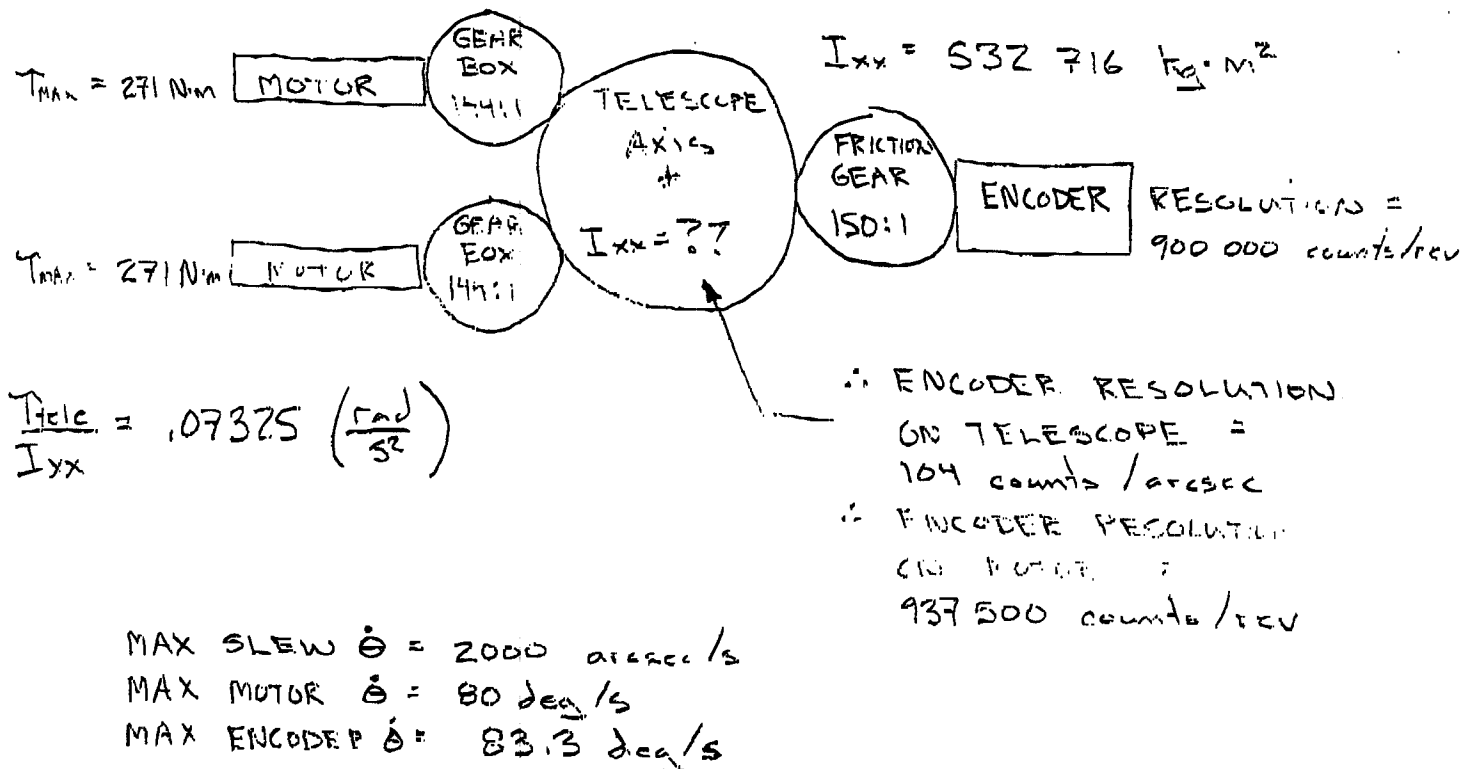 T_MAX = 271 N·m
MOTOR
GEAR
BOX
144:1
T_MAX = 271 N·m
MOTOR
GEAR
BOX
144:1
TELESCOPE
Axis
I_xx = ??
I_xx = 532 716 kg·m²
FRICTION
GEAR
150:1
ENCODER
RESOLUTION =
900 000 counts/rev
T_tele / I_xx = .07325 (rad/s²)
∴ ENCODER RESOLUTION
ON TELESCOPE =
104 counts/arcsec
∴ ENCODER RESOLUTION
ON MOTOR =
937 500 counts/rev
MAX SLEW θ̇ = 2000 arcsec/s
MAX MOTOR θ̇ = 80 deg/s
MAX ENCODER θ̇ = 83.3 deg/s